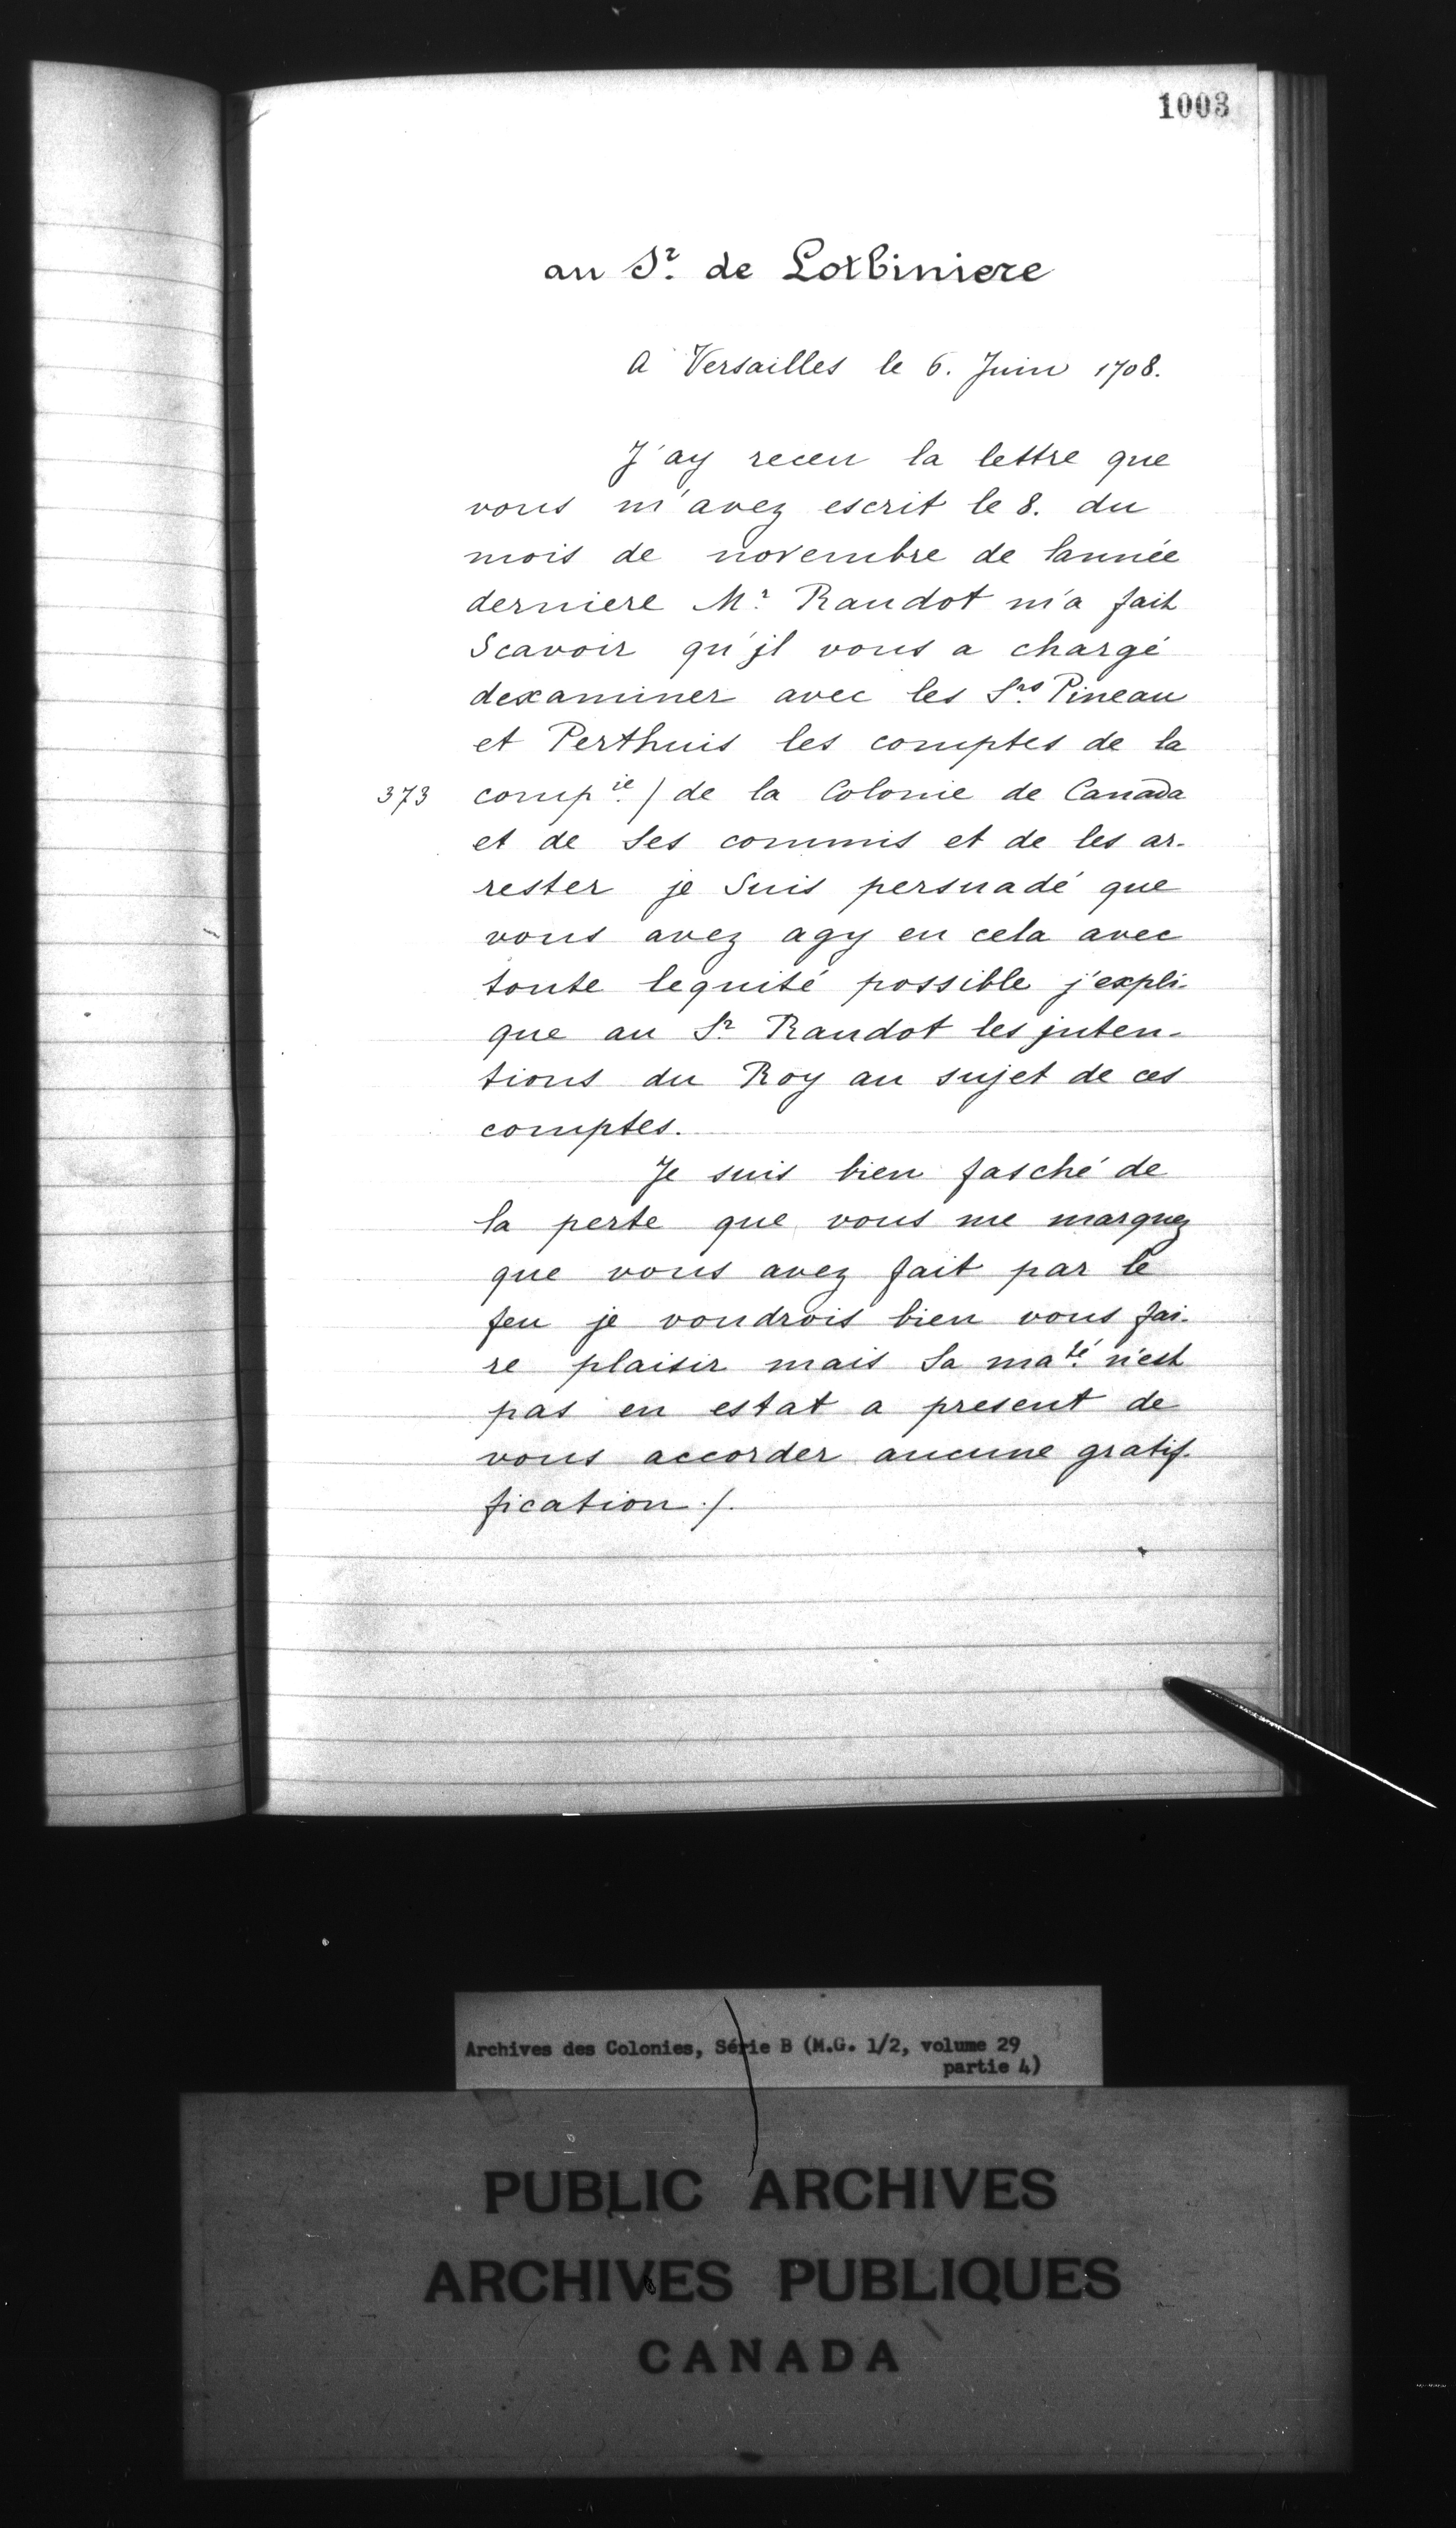 1003
au Sr. de Lotbiniere
A Versailles le 6. Juin 1708.
J'ay receu la lettre que
vous m'avez escrit le 8. du
mois de novembre de lannée
derniere Mr. Raudot m'a fait
Scavoir qu'jl vous a chargé
dexaminer avec les Srs. Pineau
et Perthuis les comptes de la
373 compie. / de la Colonie de Canada
et de Ses commis et de les ar-
rester je Suis persuadé que
vous avez agy en cela avec
toute lequité possible j'expli-
que au Sr. Raudot les jnten-
tions du Roy au sujet de ces
comptes.
Je suis bien fasché de
la perte que vous me marquez
que vous avez fait par le
feu je voudrois bien vous fai-
re plaisir mais Sa maté. n'est
pas en estat a present de
vous accorder aucune gratif-
fication ./.
Archives des Colonies, Série B (M.G. 1/2, volume 29
partie 4)
PUBLIC ARCHIVES
ARCHIVES PUBLIQUES
CANADA